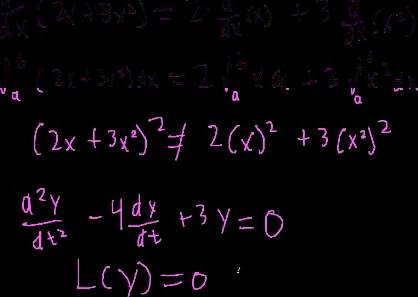 d/dx (2x+3x²) = 2 d/dx (x) + 3 d/dx (x²)
∫ₐᵇ (2x+3x²)dx = 2 ∫ₐᵇ x dx + 3 ∫ₐᵇ x² dx
(2x + 3x²)² ≠ 2(x)² + 3(x²)²
d²y/dt² - 4 dy/dt + 3y = 0
L(y) = 0